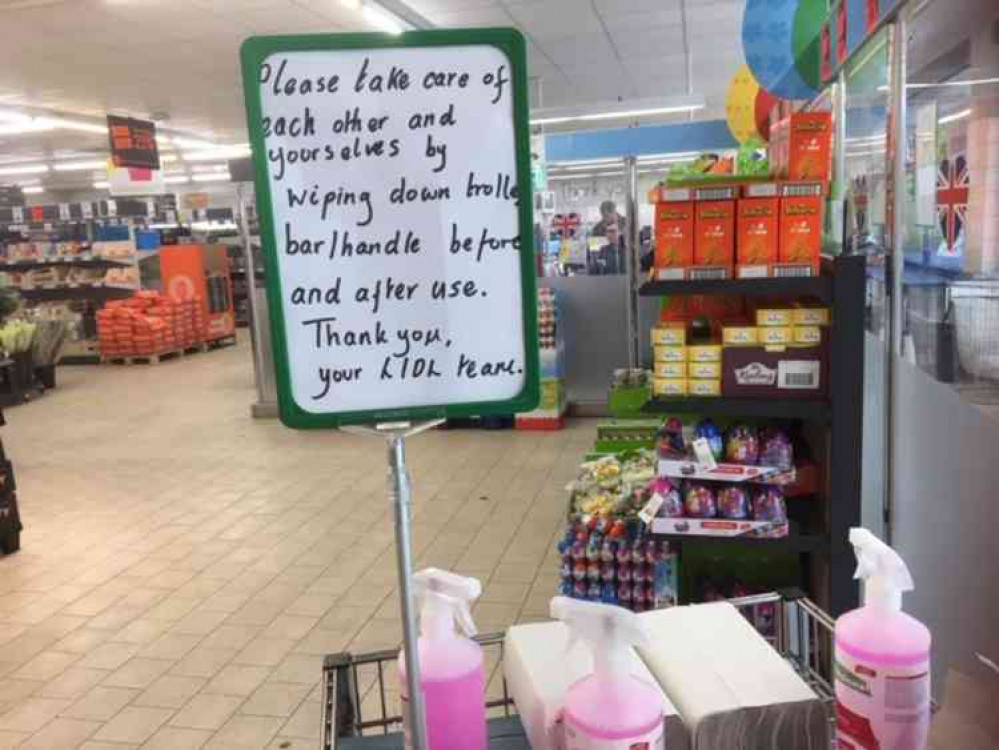 Please take care of
each other and
yourselves by
wiping down trolley
bar/handle before
and after use.
Thank you,
your LIDL team.